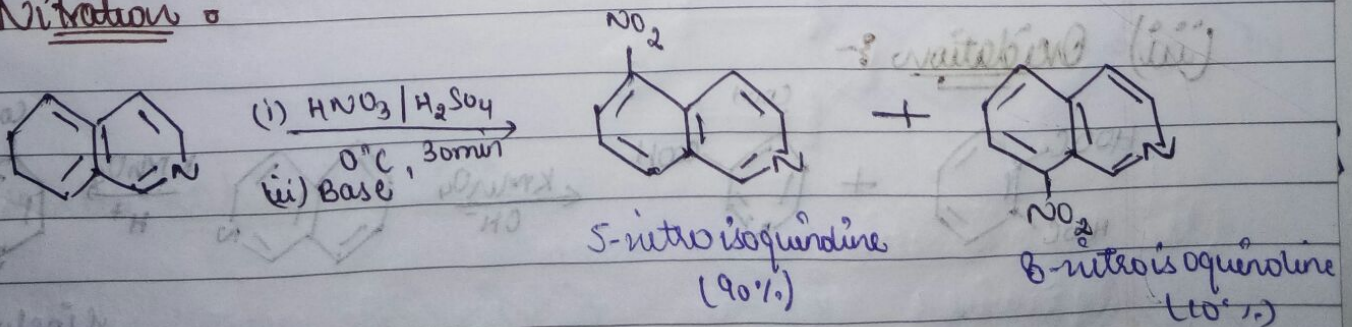 Nitration
NO2
(i) HNO3/H2SO4
0°C, 30min
(ii) Base
N
N
+
N
NO2
5-nitroisoquinoline
(90%)
8-nitroisoquinoline
(10%)